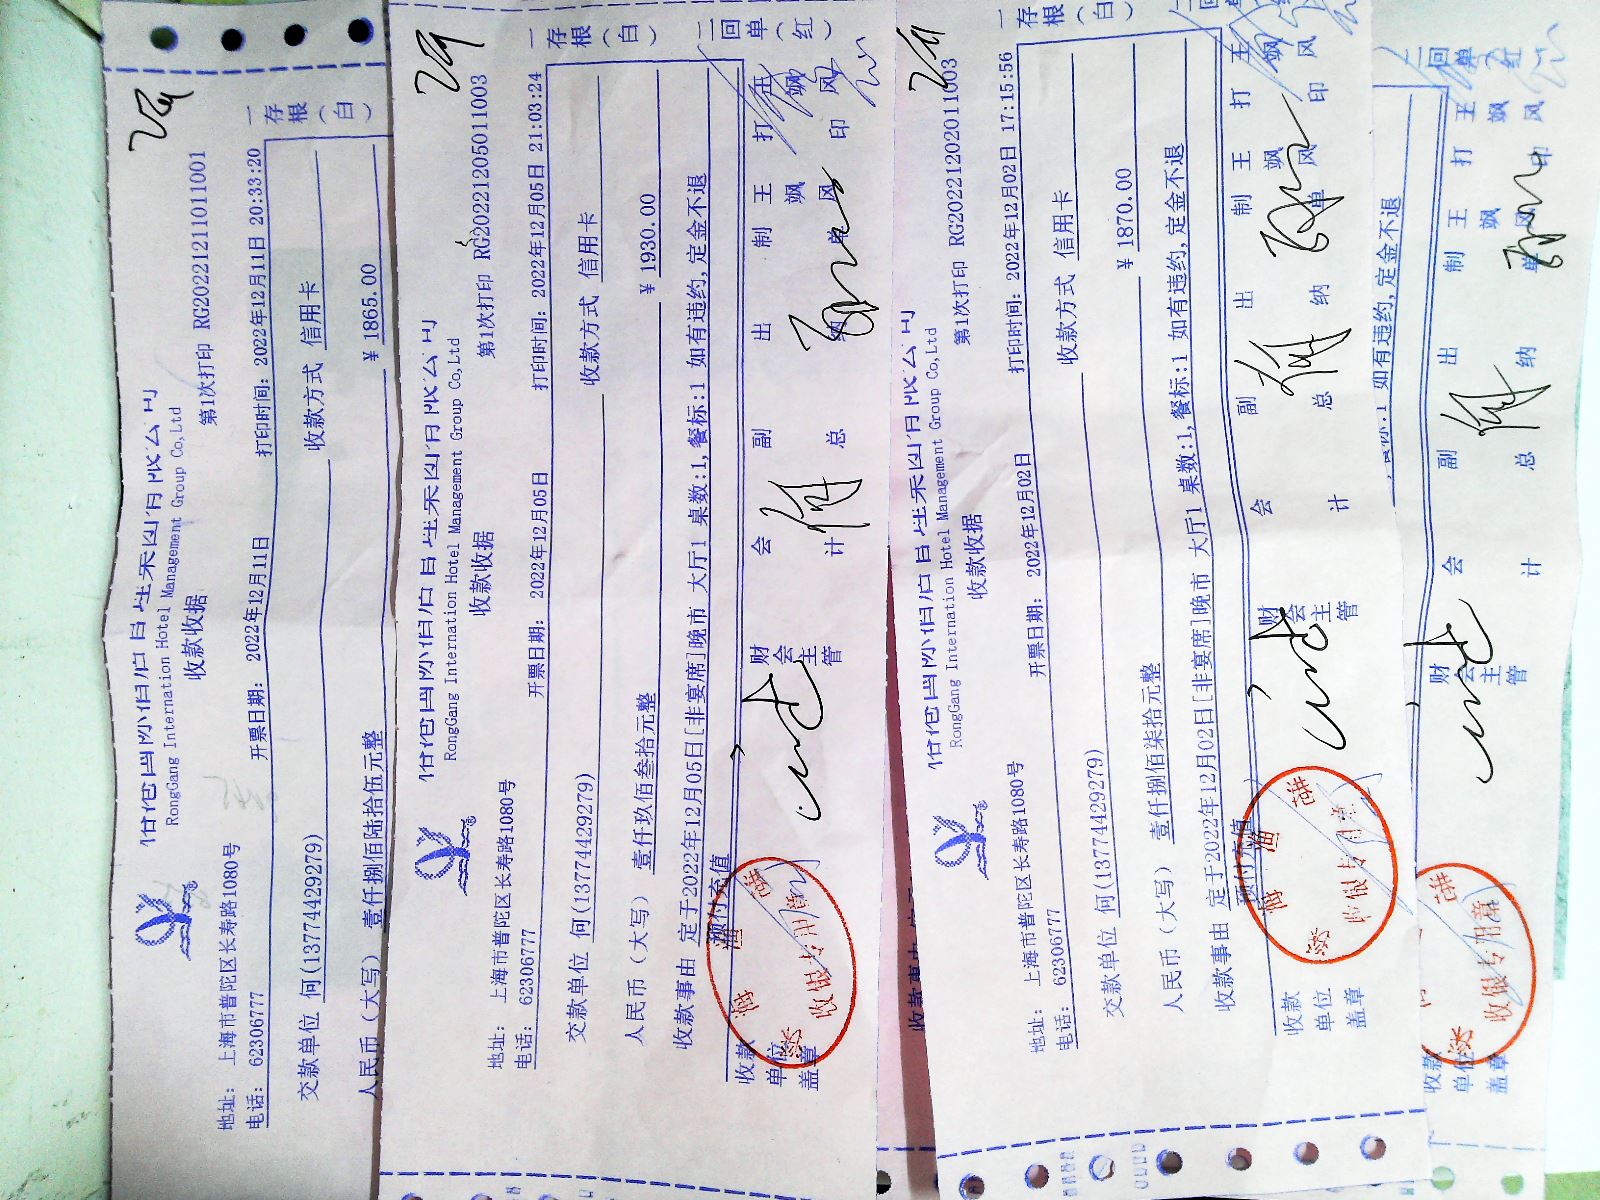 RongGang International Hotel Management Group Co,Ltd
收款收据
第1次打印 RG20221211011001
地址: 上海市普陀区长寿路1080号
电话: 62306777
开票日期: 2022年12月11日
打印时间: 2022年12月11日 20:33:20
交款单位 何(13774429279)
收款方式 信用卡
人民币(大写) 壹仟捌佰陆拾伍元整
¥ 1865.00
一存根(白)
RongGang International Hotel Management Group Co,Ltd
收款收据
第1次打印 RG20221205011003
地址: 上海市普陀区长寿路1080号
电话: 62306777
开票日期: 2022年12月05日
打印时间: 2022年12月05日 21:03:24
交款单位 何(13774429279)
收款方式 信用卡
人民币(大写) 壹仟玖佰叁拾元整
¥ 1930.00
收款事由 定于2022年12月05日[非宴席]晚市 大厅1 桌数:1,餐标:1 如有违约,定金不退
预付充值
收款单位盖章
财会主管
会计
副总
出纳
制单
王飒风
打印
王飒风
一存根(白)
二回单(红)
收银专用章
RongGang International Hotel Management Group Co,Ltd
收款收据
第1次打印 RG20221202011003
地址: 上海市普陀区长寿路1080号
电话: 62306777
开票日期: 2022年12月02日
打印时间: 2022年12月02日 17:15:56
交款单位 何(13774429279)
收款方式 信用卡
人民币(大写) 壹仟捌佰柒拾元整
¥ 1870.00
收款事由 定于2022年12月02日[非宴席]晚市 大厅1 桌数:1,餐标:1 如有违约,定金不退
预付充值
收款单位盖章
财会主管
会计
副总
出纳
制单
王飒风
打印
王飒风
一存根(白)
二回单(红)
收银专用章
如有违约,定金不退
收款单位盖章
财会主管
会计
副总
出纳
制单
王飒风
打印
王飒风
二回单(红)
收银专用章